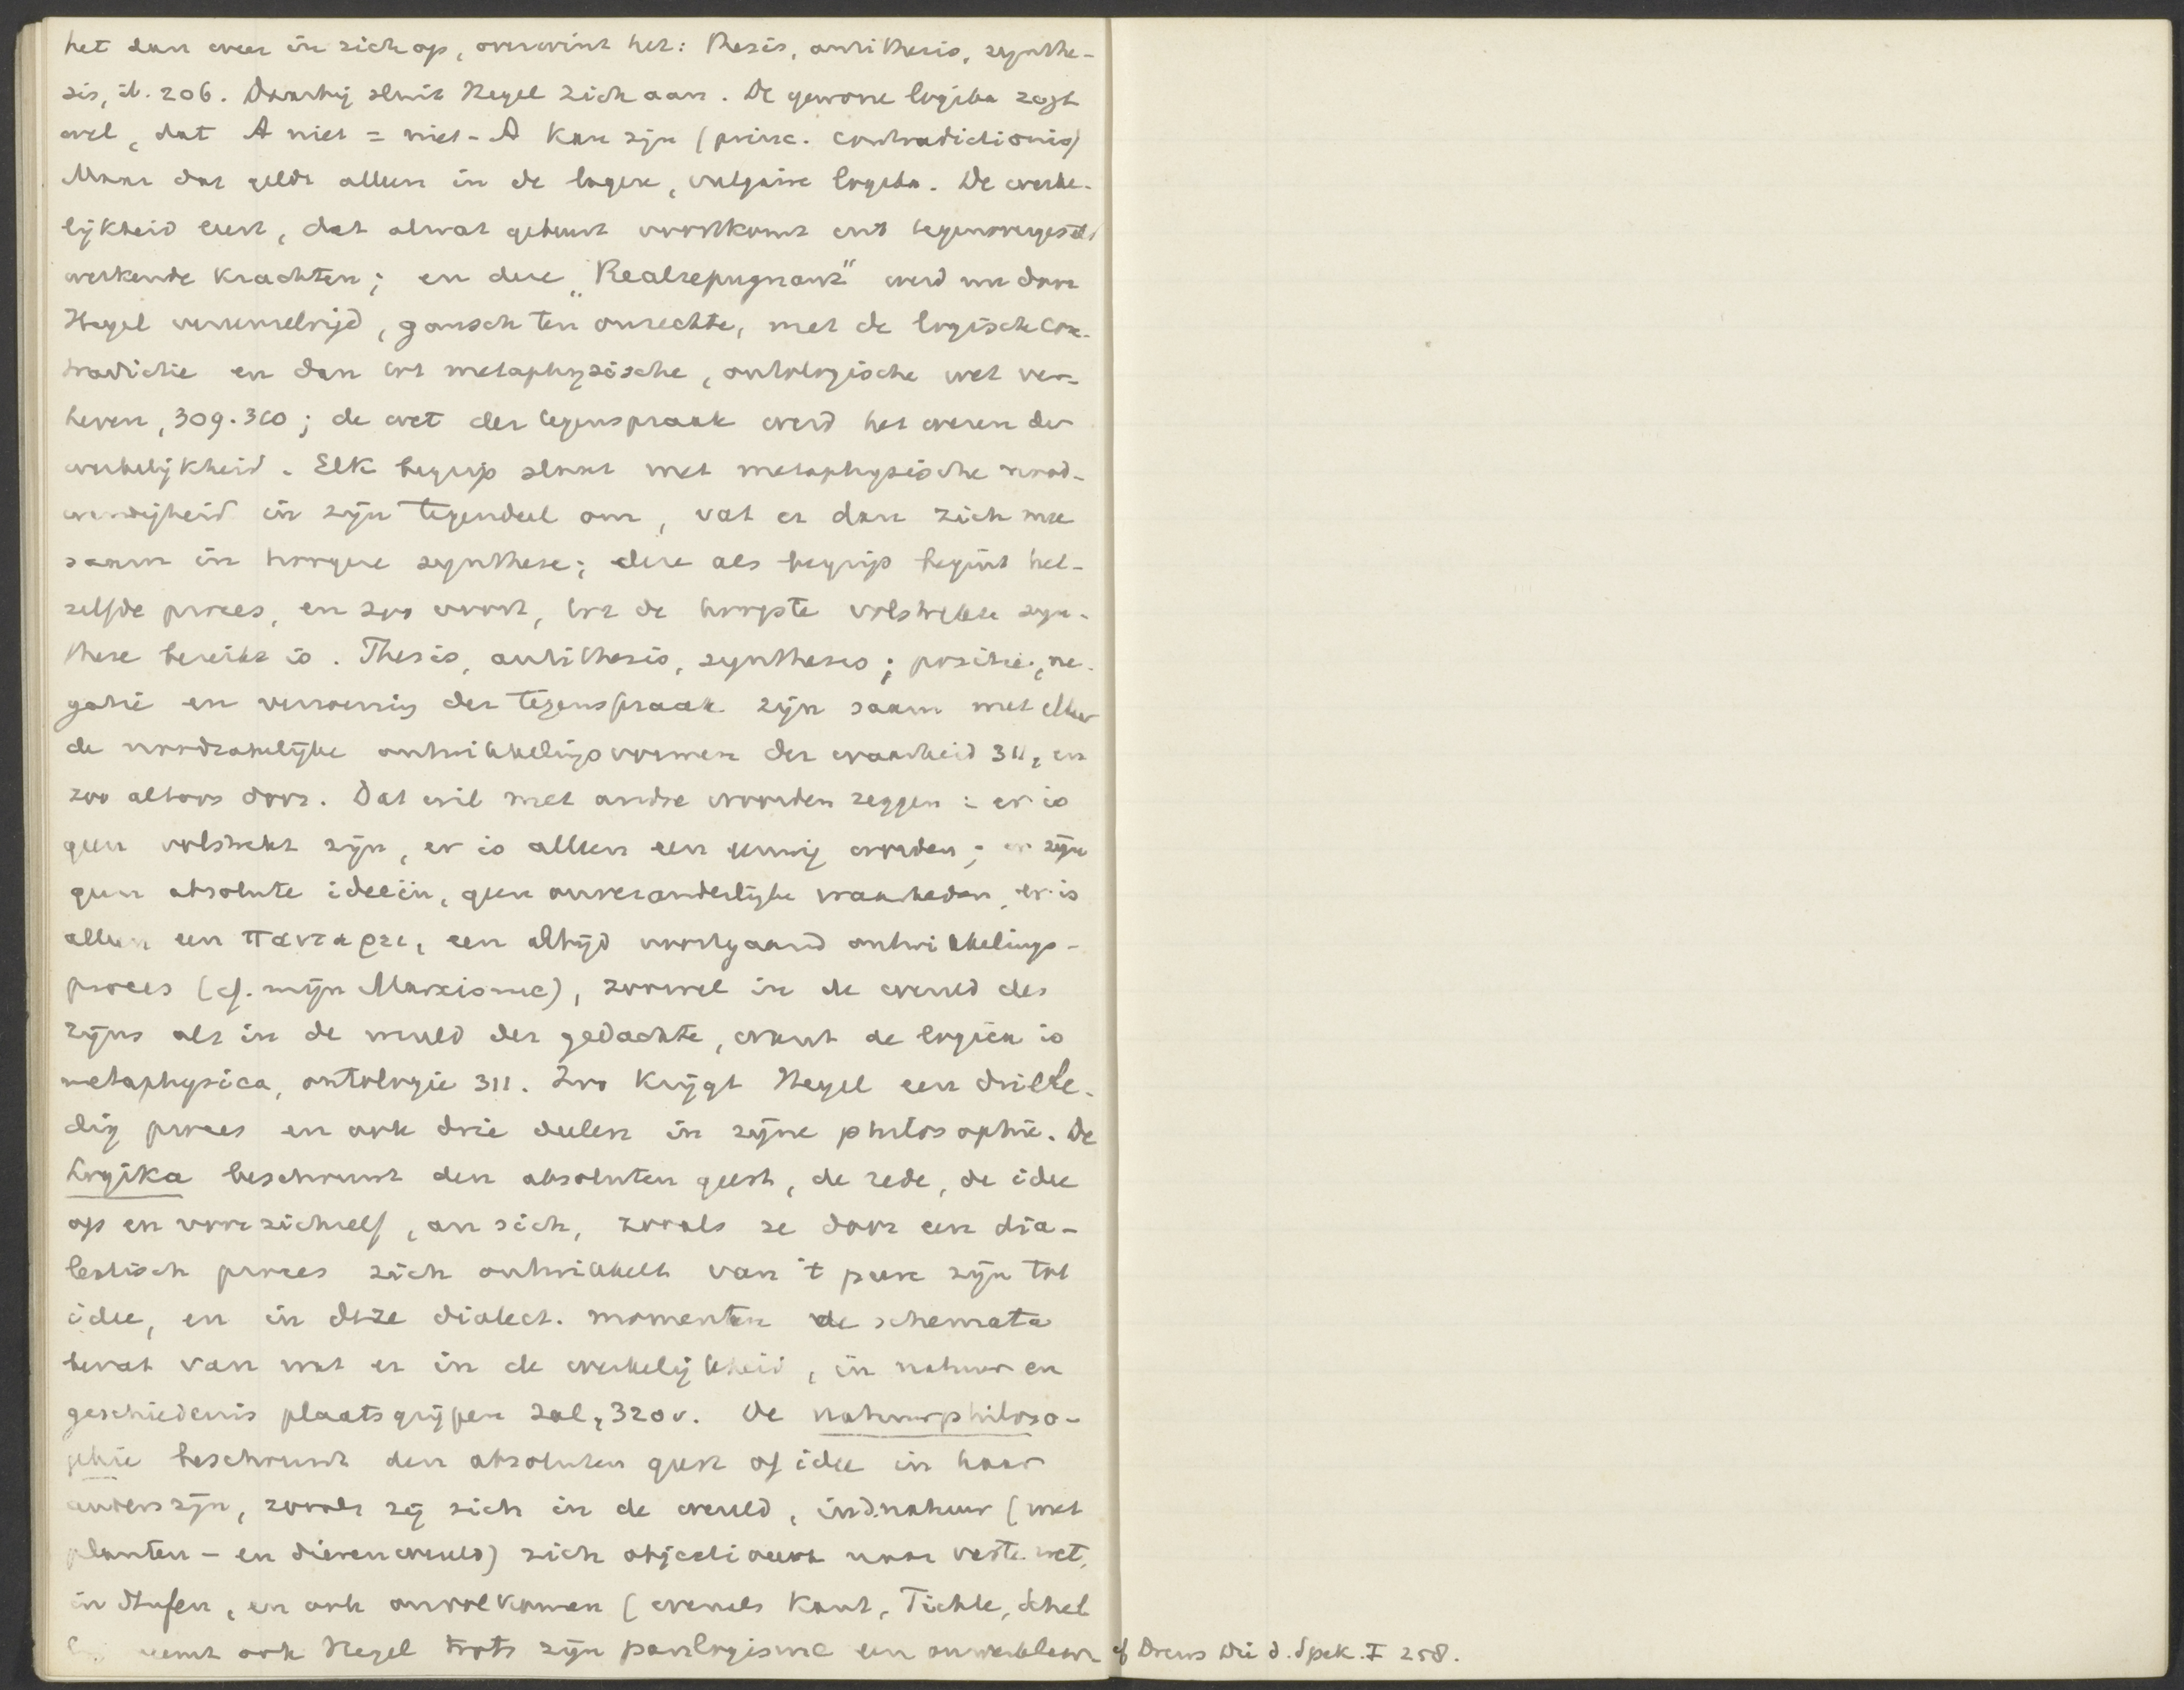 het dan weer in zich op, overwint het: thesis, antithesis, synthe-
sis, ib. 206. Daarbij sluit Hegel zich aan. De gewone logika zegt
wel, dat A niet = niet-A kan zijn (princ. contradictionis)
Maar dat geldt alleen in de lagere, vulgaire logika. De werke-
lijkheid leert, dat alwat gebeurt voortkomt uit tegenovergesteld
werkende krachten; en deze „Realrepugnanz" werd nu door
Hegel vereenzelvigd, gansch ten onrechte, met de logische con-
tradictie en dan tot metaphysische, ontologische wet ver-
heven, 309.310; de wet der tegenspraak werd het wezen der
werkelijkheid. Elk begrip slaat met metaphysische nood-
wendigheid in zijn tegendeel om, vat er dan zich mee
saam in hoogere synthese; deze als begrip begint het-
zelfde proces, en zoo voort, tot de hoogste volstrekte syn-
these bereikt is. Thesis, antithesis, synthesis; positie, ne-
gatie en verzoening der tegenspraak zijn saam met elkaar
de noodzakelijke ontwikkelingsvormen der waarheid 311, en
zoo altoos door. Dat wil met andre woorden zeggen: er is
geen volstrekt zijn, er is alleen een eeuwig worden; er zijn
geen absolute ideeën, geen onveranderlijke waarheden, er is
alleen een παντα ρει, een altijd voortgaand ontwikkelings-
proces (cf. mijn Marxisme), zoowel in de wereld des
zijns als in de wereld der gedachte, want de logica is
metaphysica, ontologie 311. Zoo krijgt Hegel een drille-
dig proces en ook drie deelen in zijne philosophie. De
Logika beschrijft den absoluten geest, de rede, de idee
op en voor zichzelf, an sich, zooals ze door een dia-
lectisch proces zich ontwikkelt van 't pure zijn tot
idee, en in deze dialect. momenten de schemata
bevat van wat er in de werkelijkheid, in natuur en
geschiedenis plaatsgrijpen zal, 320v. De natuurphiloso-
phie beschrijft den absoluten geest of idee in haar
anderszijn, zooals zij zich in de wereld, in d. natuur (met
planten- en dierenwereld) zich objectiveert naar vaste wet,
in Stufen, en ook onvolkomen (evenals Kant, Fichte, Schel
neemt ook Hegel trots zijn panlogisme een
cf Drews Die d. Spek. I 258.